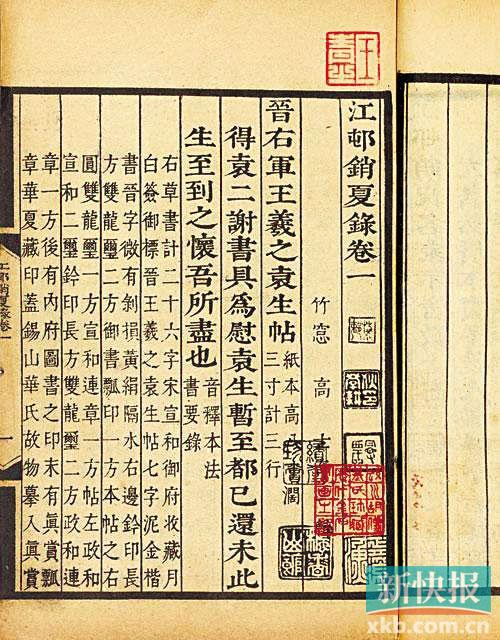 江邨銷夏錄卷一
竹窻 高
晉右軍王羲之袁生帖
紙本高
闊
三寸計三行
得袁二謝書具為慰袁生暫至都已還未此
生至到之懷吾所盡也
音釋本法
書要錄
右草書計二十六字宋宣和御府收藏月
白簽御標晉王羲之袁生帖七字泥金楷
書晉字微有剝損黃絹隔水右邊鈐印長
方雙龍璽二方御書瓢印一方本帖之右
圓雙龍璽一方宣和連章一方帖左政和
宣和二璽鈐印長方雙龍璽二方政和連
章一方後有內府圖書之印末有眞賞
章華夏藏印蓋錫山華氏故物摹入眞賞
江邨銷夏錄卷一
一
新快报
xkb.com.cn